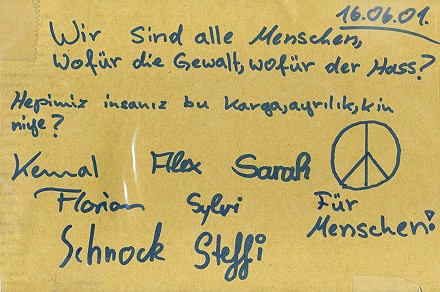 16.06.01.
Wir sind alle Menschen,
Wofür die Gewalt, wofür der Hass?
Hepimiz insanız bu Karga, ayrilik, kin
niye?
Kemal Alex Sarah
Florian Sylvi Für
Menschen!
Schnock Steffi